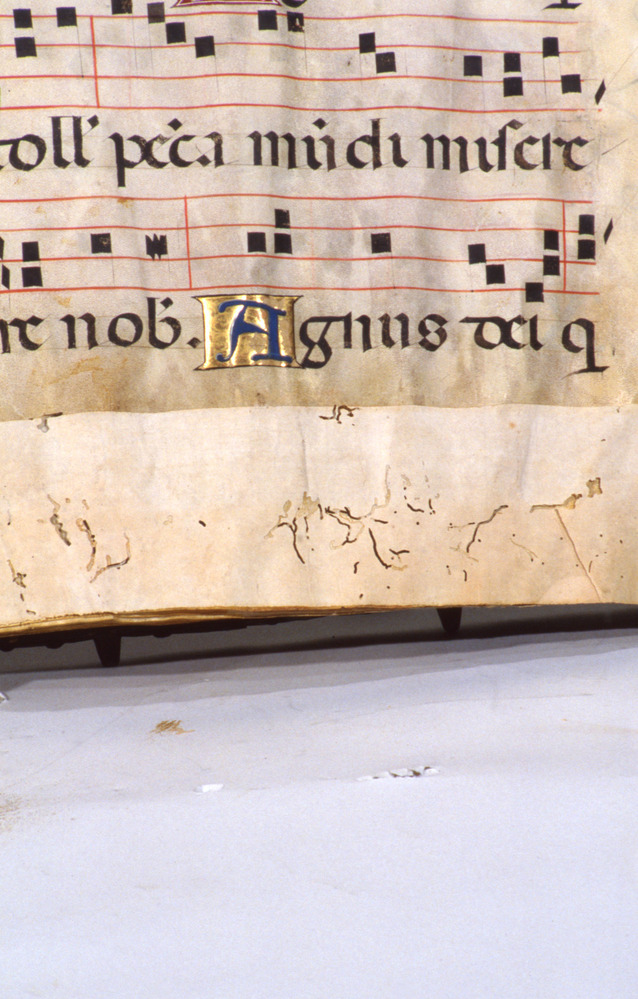 toll' pc̄ca mūdi misere
re nob. Agnus dei q